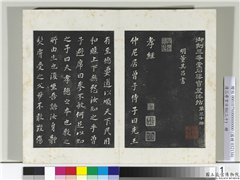 御刻三希堂石渠寶笈法帖
明董其昌書
孝經
仲尼居曾子侍子曰先王
有至德要道以順天下民用
和睦上下無怨汝知之乎曾
子避席曰參不敏何足以知
之子曰夫孝德之本也教之
所由生也復坐吾語汝身體
髮膚受之父母不敢毀傷